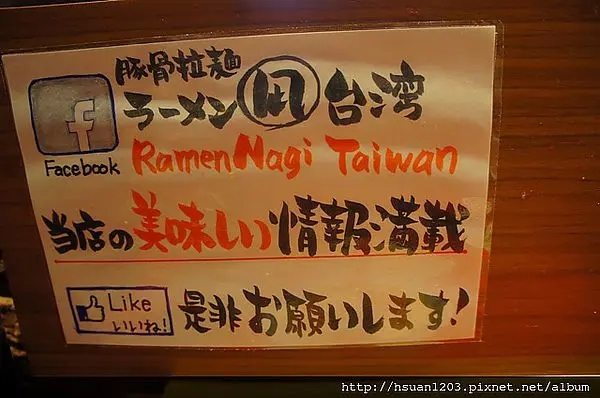 豚骨拉麺
ラーメン凪台湾
f
Facebook
RamenNagi Taiwan
当店の美味しい情報満載
Like
いいね!
是非お願いします!
http://hsuan1203.pixnet.net/album